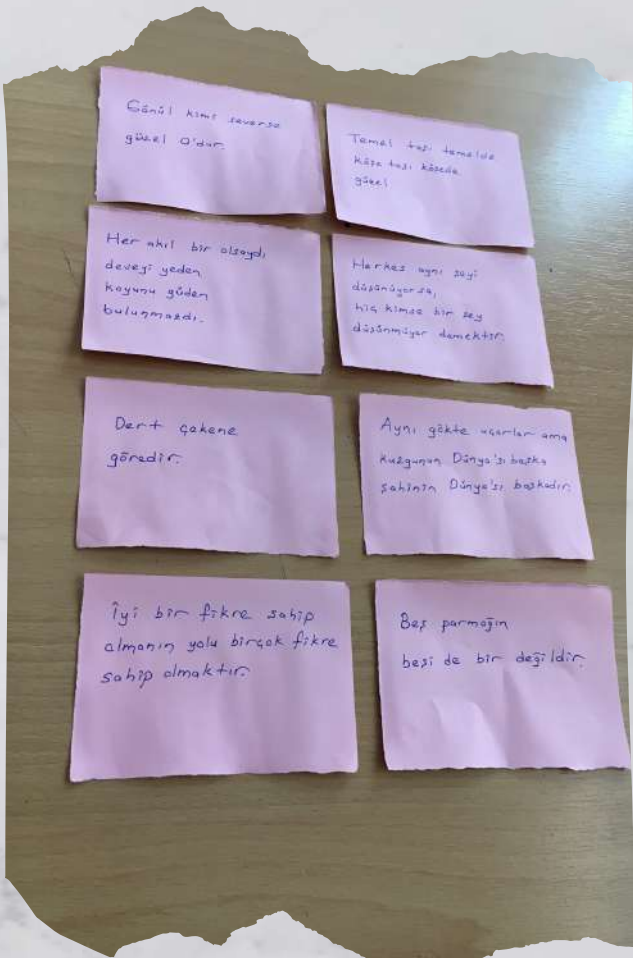 Gönül kimi severse
güzel O'dur.
Temel taşı temelde
köşe taşı köşede
güzel
Her akıl bir olsaydı
deveyi yeden
koyunu güden
bulunmazdı.
Herkes aynı şeyi
düşünüyorsa,
hiç kimse bir şey
düşünmüyor demektir.
Dert çekene
göredir.
Aynı gökte uçarlar ama
kuzgunun Dünya'sı başka
şahinin Dünya'sı başkadır.
İyi bir fikre sahip
olmanın yolu birçok fikre
sahip olmaktır.
Beş parmağın
beşi de bir değildir.